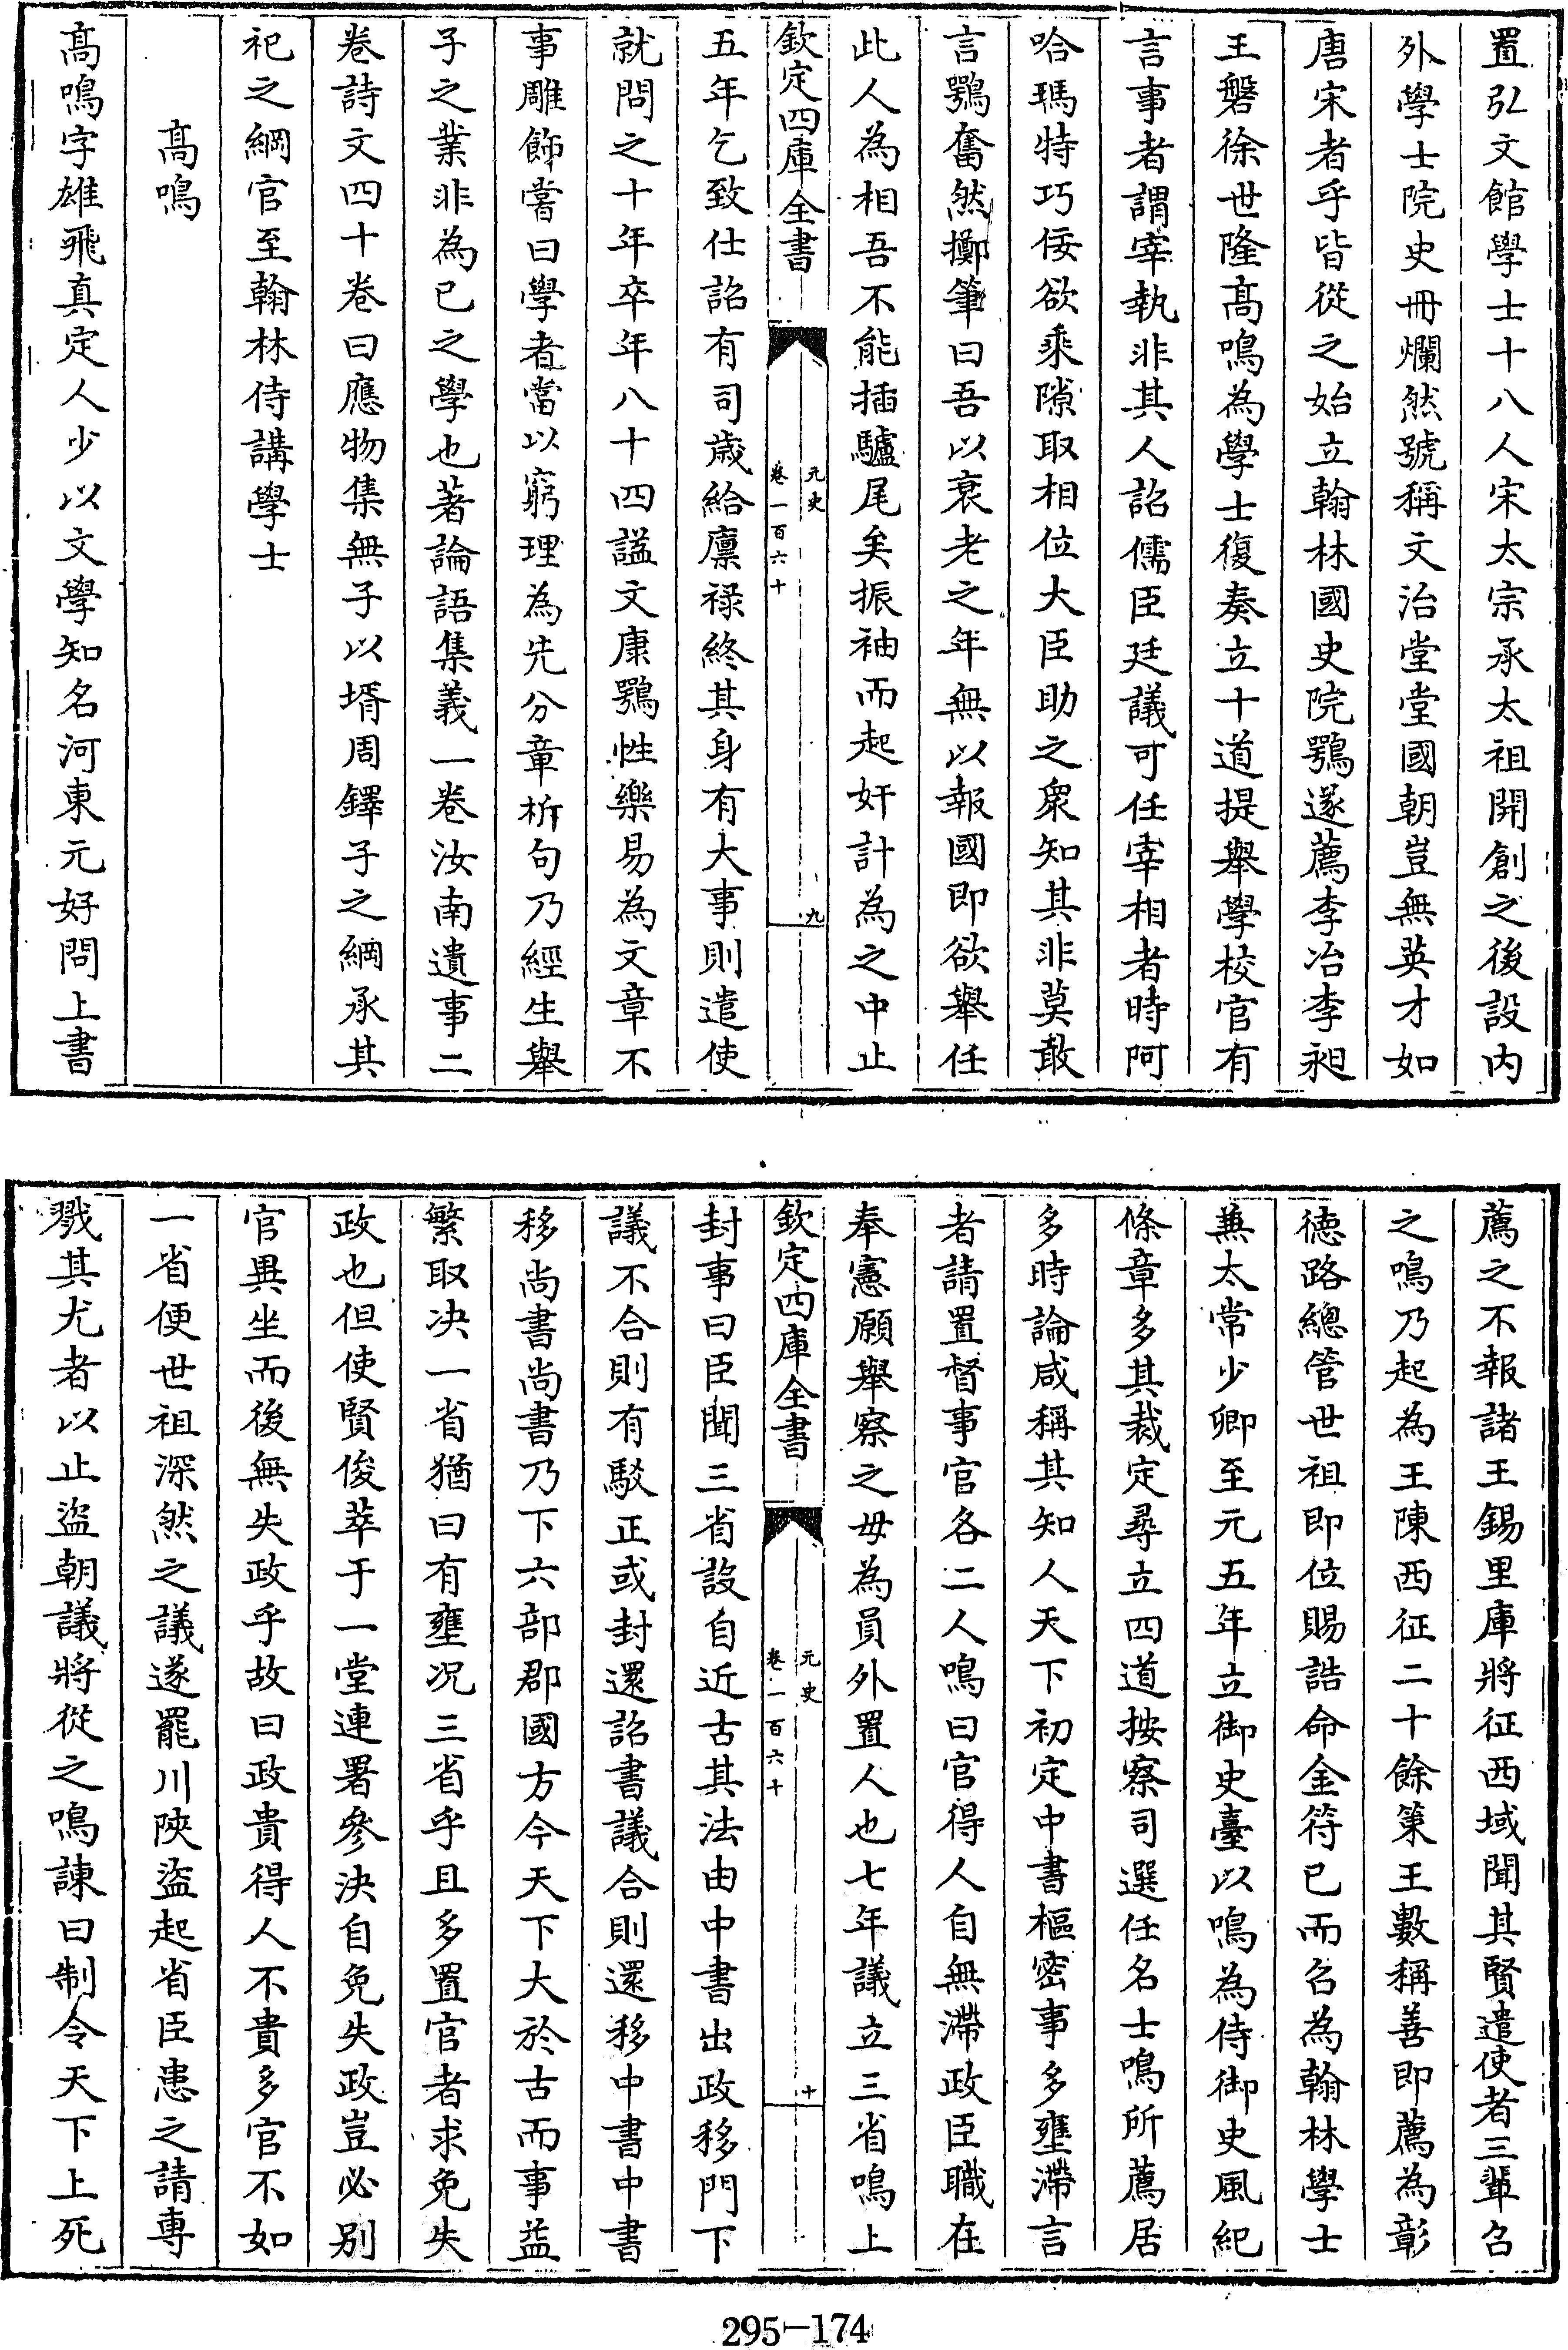 置弘文館學士十八人宋太宗承太祖開創之後設内
外學士院史冊爛然號稱文治堂堂國朝豈無英才如
唐宋者乎皆從之始立翰林國史院鶚遂薦李冶李昶
王磐徐世隆髙鳴為學士復奏立十道提舉學校官有
言事者謂宰執非其人詔儒臣廷議可任宰相者時阿
哈瑪特巧佞欲乘隙取相位大臣助之衆知其非莫敢
言鶚奮然擲筆曰吾以衰老之年無以報國即欲舉任
此人為相吾不能插驢尾矣振袖而起奸計為之中止
欽定四庫全書
元史
卷一百六十
九
五年乞致仕詔有司歲給廪禄終其身有大事則遣使
就問之十年卒年八十四謚文康鶚性樂易為文章不
事雕飾嘗曰學者當以窮理為先分章析句乃經生舉
子之業非為已之學也著論語集義一卷汝南遺事二
卷詩文四十卷曰應物集無子以壻周鐸子之綱承其
祀之綱官至翰林侍講學士
髙鳴
髙鳴字雄飛真定人少以文學知名河東元好問上書
薦之不報諸王錫里庫將征西域聞其賢遣使者三輩召
之鳴乃起為王陳西征二十餘策王數稱善即薦為彰
德路總管世祖即位賜誥命金符已而召為翰林學士
兼太常少卿至元五年立御史臺以鳴為侍御史風紀
條章多其裁定尋立四道按察司選任名士鳴所薦居
多時論咸稱其知人天下初定中書樞密事多壅滯言
者請置督事官各二人鳴曰官得人自無滯政臣職在
奉憲願舉察之毋為員外置人也七年議立三省鳴上
欽定四庫全書
元史
卷一百六十
十
封事曰臣聞三省設自近古其法由中書出政移門下
議不合則有駁正或封還詔書議合則還移中書中書
移尚書尚書乃下六部郡國方今天下大於古而事益
繁取决一省猶曰有壅况三省乎且多置官者求免失
政也但使賢俊萃于一堂連署參決自免失政豈必别
官異坐而後無失政乎故曰政貴得人不貴多官不如
一省便世祖深然之議遂罷川陝盗起省臣患之請専
戮其尤者以止盗朝議將從之鳴諫曰制令天下上死
295-174